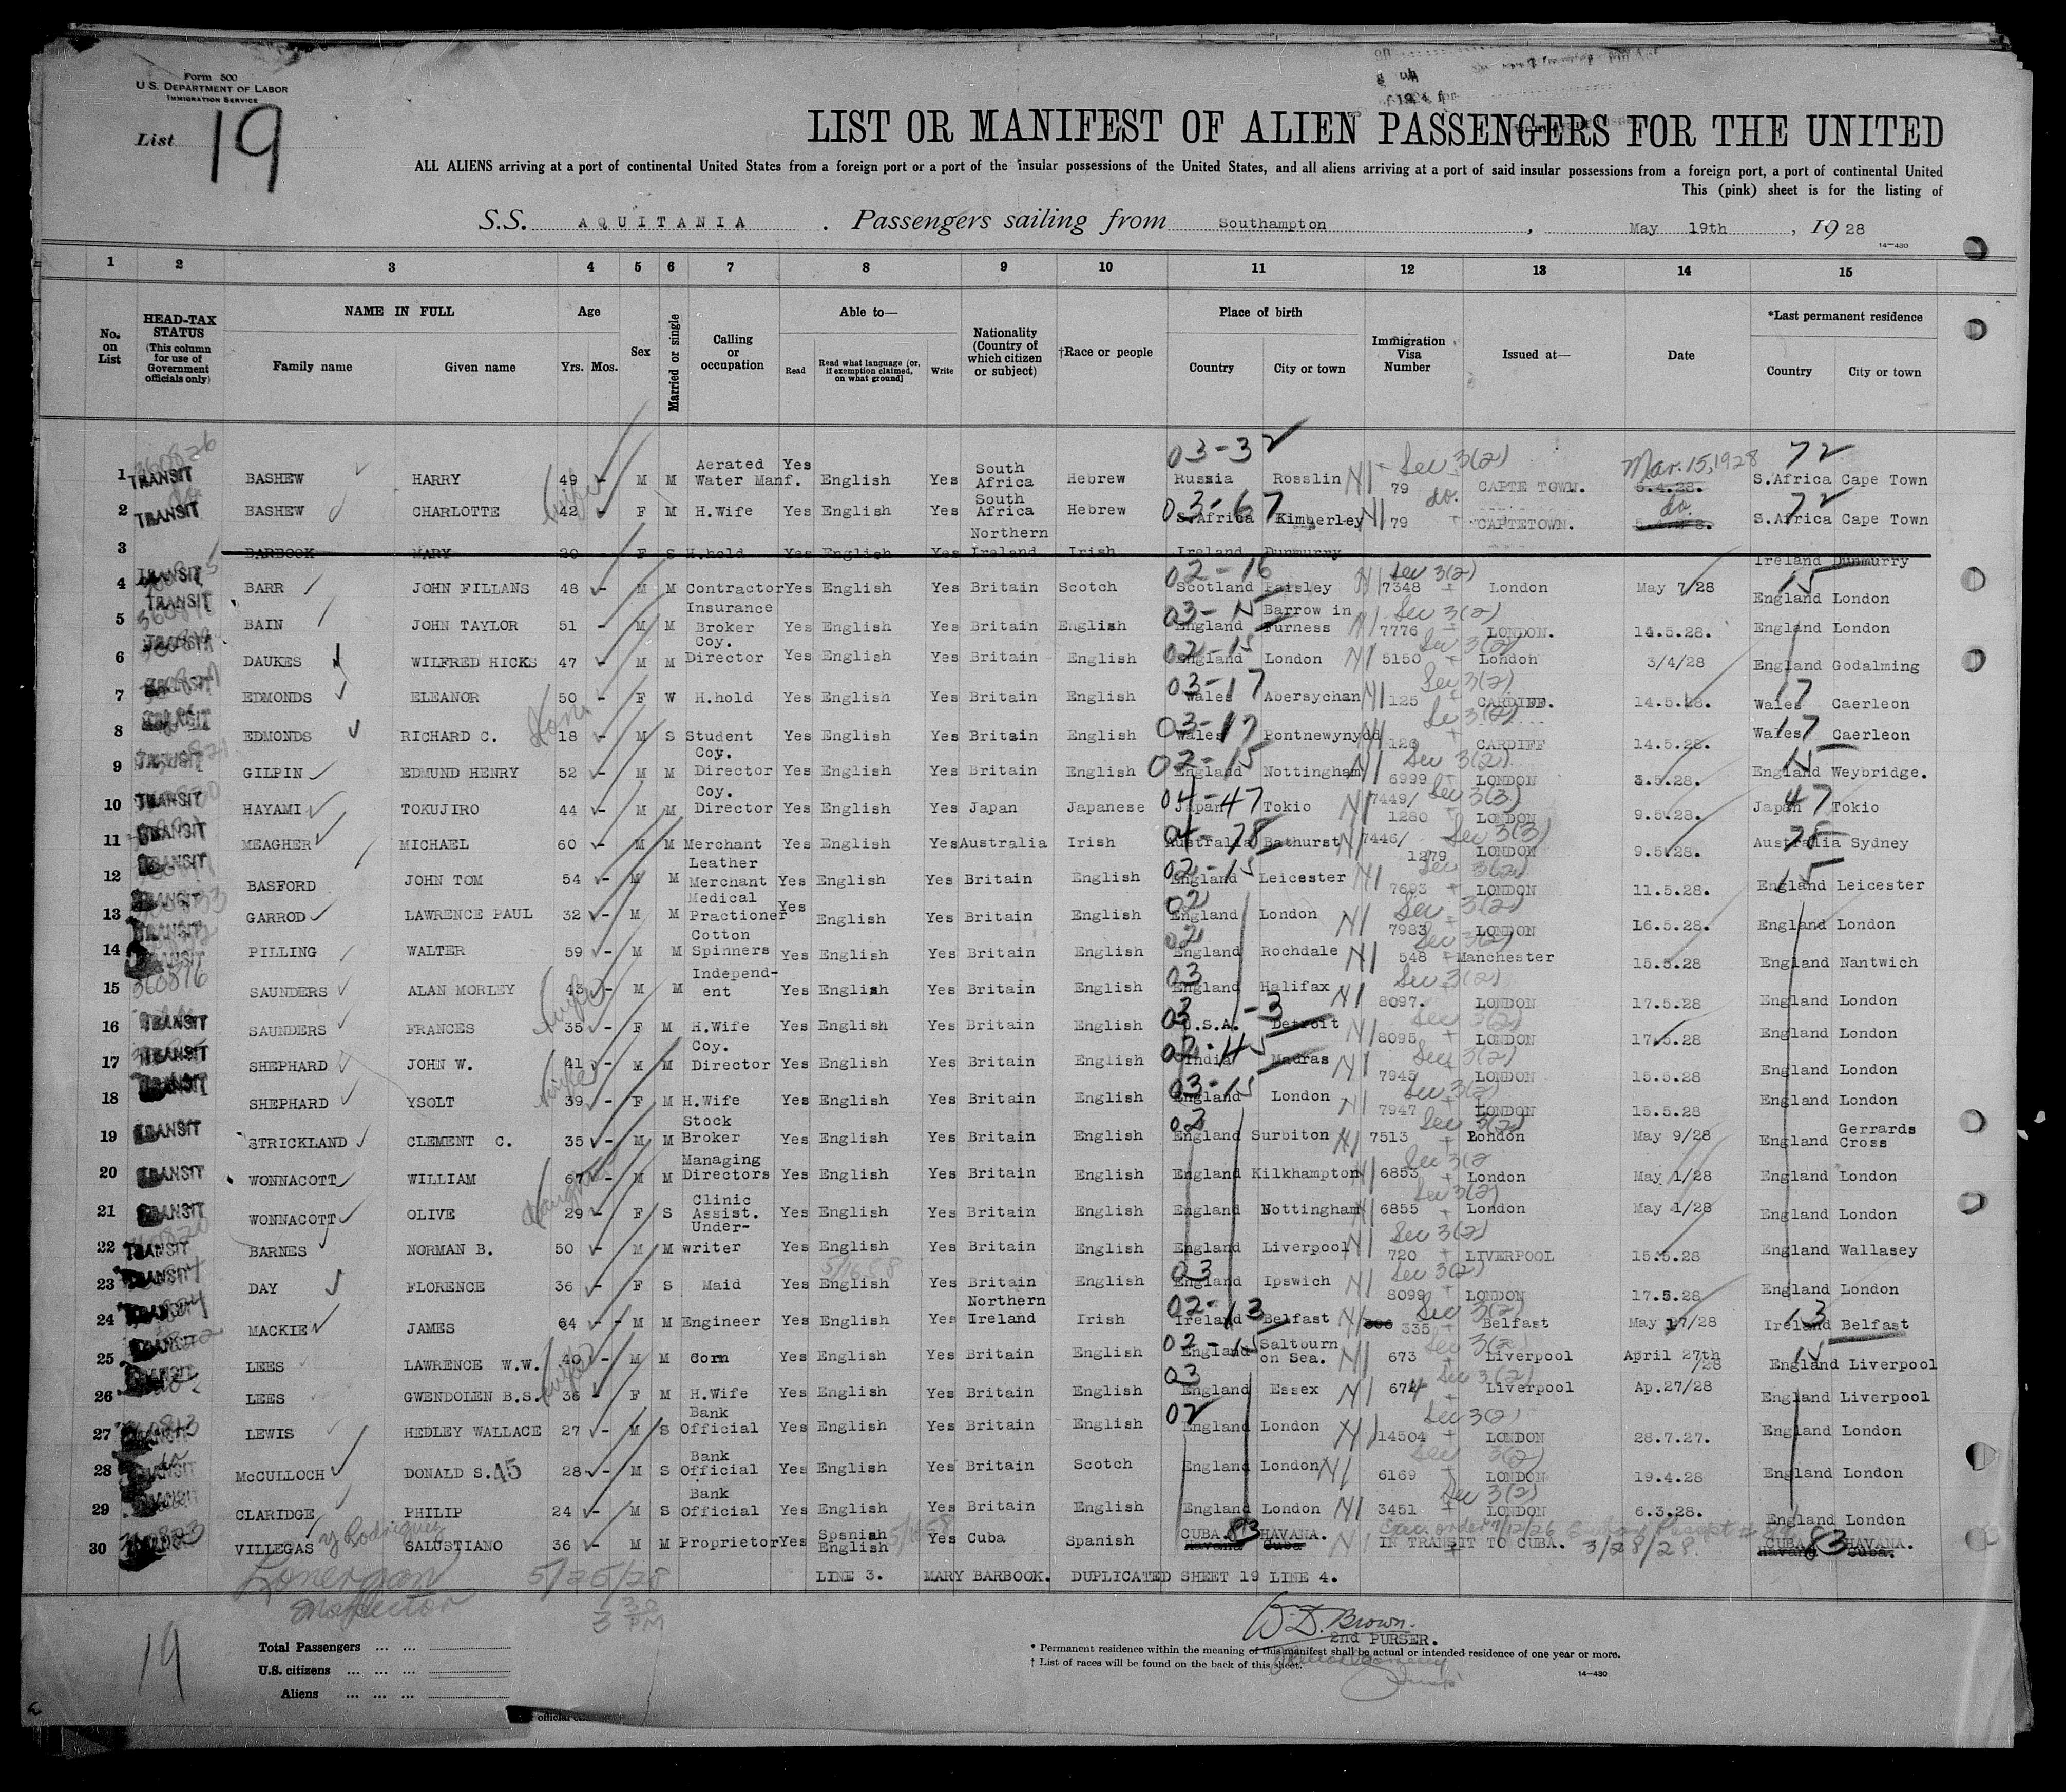 Form 500
U. S. DEPARTMENT OF LABOR
IMMIGRATION SERVICE
List 19
LIST OR MANIFEST OF ALIEN PASSENGERS FOR THE UNITED
ALL ALIENS arriving at a port of continental United States from a foreign port or a port of the insular possessions of the United States, and all aliens arriving at a port of said insular possessions from a foreign port, a port of continental United
This (pink) sheet is for the listing of
S.S. AQUITANIA . Passengers sailing from Southampton , May 19th , 1928
14—430
1 2 3 4 5 6 7 8 9 10 11 12 13 14 15
No. on List HEAD-TAX STATUS (This column for use of Government officials only) NAME IN FULL Family name Given name Age Yrs. Mos. Sex Married or single Calling or occupation Able to— Read Read what language (or, if exemption claimed, on what ground) Write Nationality (Country of which citizen or subject) †Race or people Place of birth Country City or town Immigration Visa Number Issued at— Date *Last permanent residence Country City or town
1 TRANSIT BASHEW HARRY 49 M M Aerated Water Manf. Yes English Yes South Africa Hebrew 03-32 Russia Rosslin N1 79 Sec 3(2) CAPE TOWN. Mar. 15, 1928 5.4.28. 72 S.Africa Cape Town
2 TRANSIT BASHEW CHARLOTTE wife 42 F M H.Wife Yes English Yes South Africa Hebrew 03-67 S.Africa Kimberley N1 79 do. CAPETOWN. do. 72 S.Africa Cape Town
3 BARBOOK MARY 20 F S H.hold Yes English Yes Northern Ireland Irish Ireland Dunmurry Ireland Dunmurry
4 TRANSIT BARR JOHN FILLANS 48 M M Contractor Yes English Yes Britain Scotch 02-16 Scotland Paisley N1 7348 Sec 3(2) London May 7/28 15 England London
5 TRANSIT BAIN JOHN TAYLOR 51 M M Insurance Broker Yes English Yes Britain English 03-15 England Barrow in Furness N1 7776 Sec 3(2) LONDON. 14.5.28. England London
6 TRANSIT DAUKES WILFRED HICKS 47 M M Coy. Director Yes English Yes Britain English 02-15 England London N1 5150 Sec 3(2) London 3/4/28 England Godalming
7 TRANSIT EDMONDS ELEANOR 50 F W H.hold Yes English Yes Britain English 03-17 Wales Abersychan N1 125 Sec 3(2) CARDIFF. 14.5.28. 17 Wales Caerleon
8 TRANSIT EDMONDS RICHARD C. son 18 M S Student Yes English Yes Britain English 03-17 Wales Pontnewynydd N1 126 Sec 3(2) CARDIFF 14.5.28. 17 Wales Caerleon
9 TRANSIT GILPIN EDMUND HENRY 52 M M Coy. Director Yes English Yes Britain English 02-15 England Nottingham N1 6999 Sec 3(2) LONDON 3.5.28. 15 England Weybridge.
10 TRANSIT HAYAMI TOKUJIRO 44 M M Coy. Director Yes English Yes Japan Japanese 04-47 Japan Tokio N1 7449/1280 Sec 3(3) LONDON 9.5.28. 47 Japan Tokio
11 TRANSIT MEAGHER MICHAEL 60 M M Merchant Yes English Yes Australia Irish 04-78 Australia Bathurst N1 7446/1279 Sec 3(3) LONDON 9.5.28. 78 Australia Sydney
12 TRANSIT BASFORD JOHN TOM 54 M M Leather Merchant Yes English Yes Britain English 02-15 England Leicester N1 7693 Sec 3(2) LONDON 11.5.28. 15 England Leicester
13 TRANSIT GARROD LAWRENCE PAUL 32 M M Medical Practioner Yes English Yes Britain English 02 England London N1 7983 Sec 3(2) LONDON 16.5.28. England London
14 TRANSIT PILLING WALTER 59 M M Cotton Spinners Yes English Yes Britain English 02 England Rochdale N1 548 Sec 3(2) Manchester 15.5.28 England Nantwich
15 360816 SAUNDERS ALAN MORLEY 43 M M Independ-ent Yes English Yes Britain English 03 England Halifax N1 8097. Sec 3(2) LONDON 17.5.28 England London
16 TRANSIT SAUNDERS FRANCES wife 35 F M H.Wife Yes English Yes Britain English 03-3 U.S.A. Detroit N1 8095 Sec 3(2) LONDON 17.5.28 England London
17 TRANSIT SHEPHARD JOHN W. 41 M M Coy. Director Yes English Yes Britain English 02-45 India Madras N1 7945 Sec 3(2) LONDON 15.5.28 England London
18 TRANSIT SHEPHARD YSOLT wife 39 F M H.Wife Yes English Yes Britain English 03-15 England London N1 7947 Sec 3(2) LONDON 15.5.28 England London
19 TRANSIT STRICKLAND CLEMENT C. 35 M M Stock Broker Yes English Yes Britain English 02 England Surbiton N1 7513 Sec 3(2) London May 9/28 England Gerrards Cross
20 TRANSIT WONNACOTT WILLIAM 67 M M Managing Directors Yes English Yes Britain English England Kilkhampton N1 6853 Sec 3(2 London May 1/28 England London
21 TRANSIT WONNACOTT OLIVE daughter 29 F S Clinic Assist. Yes English Yes Britain English England Nottingham N1 6855 Sec 3(2) London May 1/28 England London
22 TRANSIT BARNES NORMAN B. 50 M M Under-writer Yes English Yes Britain English England Liverpool N1 720 Sec 3(2) LIVERPOOL 15.5.28 England Wallasey
23 TRANSIT DAY FLORENCE 36 F S Maid Yes English Yes Britain English 03 England Ipswich N1 8099 Sec 3(2) LONDON 17.5.28 England London
24 TRANSIT MACKIE JAMES 64 M M Engineer Yes English Yes Northern Ireland Irish 02-13 Ireland Belfast N1 335 Sec 3(2) Belfast May 17/28 13 Ireland Belfast
25 TRANSIT LEES LAWRENCE W.W. 40 M M Corn Yes English Yes Britain English 02-15 England Saltburn on Sea. N1 673 Sec 3(2) Liverpool April 27th /28 15 England Liverpool
26 TRANSIT LEES GWENDOLEN B.S. wife 36 F M H.Wife Yes English Yes Britain English 03 England Essex N1 674 Sec 3(2) Liverpool Ap.27/28 England Liverpool
27 LEWIS HEDLEY WALLACE 27 M S Bank Official Yes English Yes Britain English 02 England London N1 14504 Sec 3(2) LONDON 28.7.27. England London
28 TRANSIT McCULLOCH DONALD S. 45 28 M S Bank Official Yes English Yes Britain Scotch England London N1 6169 Sec 3(2) LONDON 19.4.28 England London
29 TRANSIT CLARIDGE PHILIP 24 M S Bank Official Yes English Yes Britain English England London N1 3451 Sec 3(2) LONDON 6.3.28. England London
30 VILLEGAS y Rodriguez SALUSTIANO 36 M M Proprietor Yes Spanish English Yes Cuba Spanish CUBA. 83 HAVANA. Havana Cuba N1 Exec. order 7/12/26 IN TRANSIT TO CUBA. 3/28/28. CUBA 83 HAVANA. Havana Cuba.
LINE 3. MARY BARBOOK. DUPLICATED SHEET 19 LINE 4.
Lonergan 5/25/28
Inspector 3 30 PM
W.D. Brown.
2nd PURSER.
19
Total Passengers ... ...
U.S. citizens ... ... ...
Aliens ... ... ...
* Permanent residence within the meaning of this manifest shall be actual or intended residence of one year or more.
† List of races will be found on the back of this sheet.
14—430